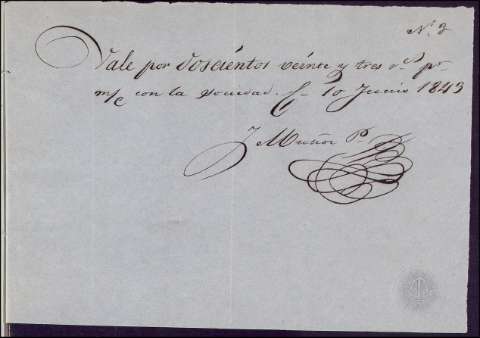 Nº 2
Vale por Doscientos veinte y tres r.s p.r
m/c con la sociedad. 10 Junio 1843
J Muñoz P.